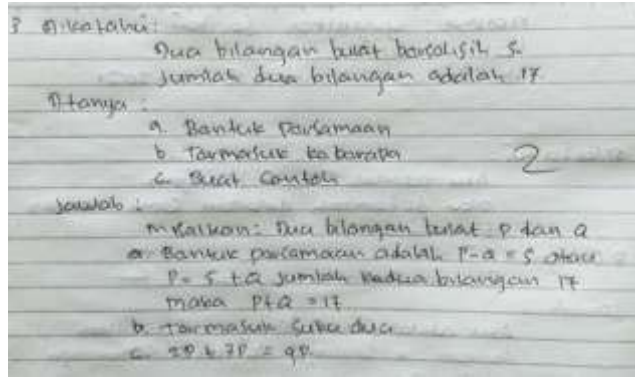 3 Diketahui:
Dua bilangan bulat berselisih 5.
Jumlah dua bilangan adalah 17
Ditanya :
a. Bentuk persamaan
b. Termasuk ke berapa
c. Buat Contoh
2
Jawab :
misalkan: Dua bilangan bulat p dan Q
a. Bentuk persamaan adalah P-Q = 5 atau
P= 5 + Q jumlah kedua bilangan 17
maka P+Q = 17
b. termasuk suku dua
c. 2P + 7P = 9P.